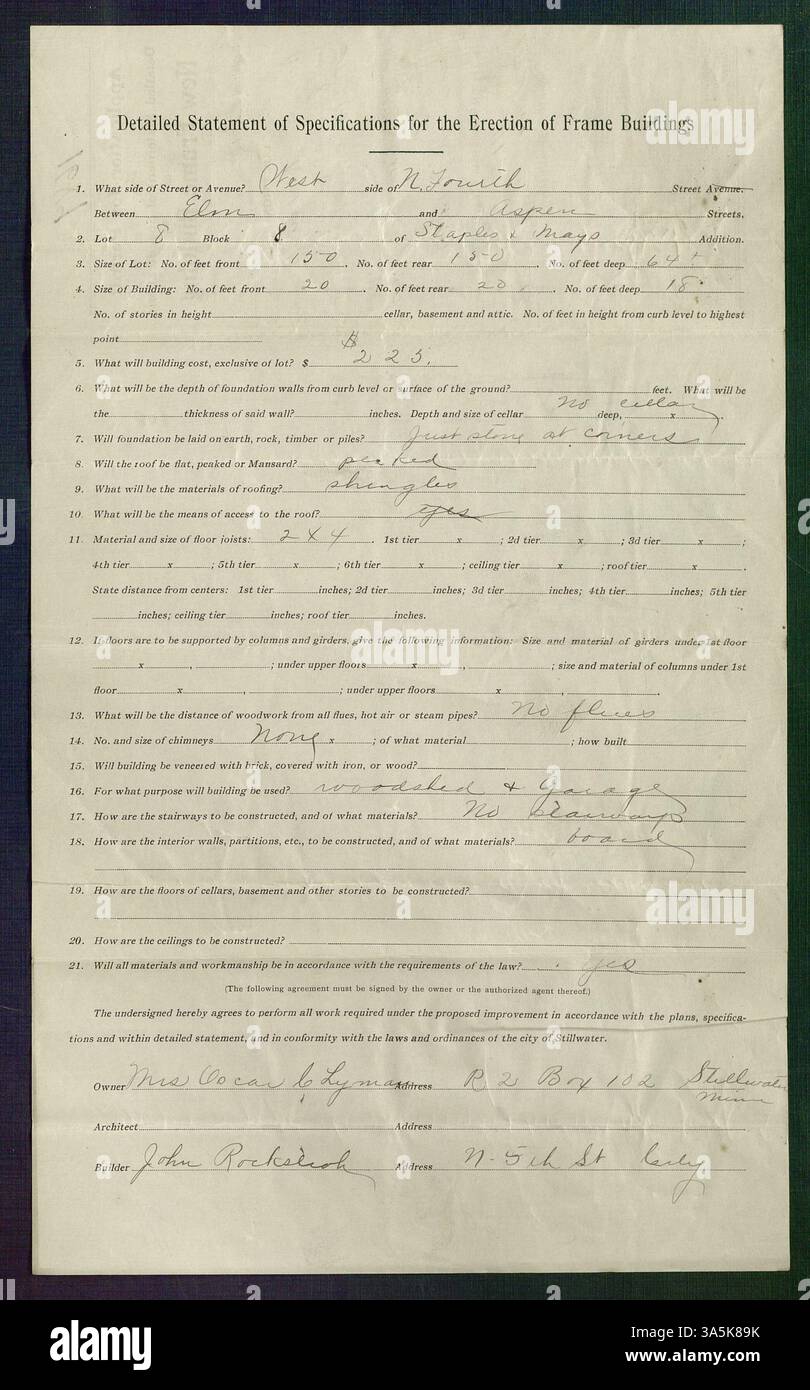 Detailed Statement of Specifications for the Erection of Frame Buildings
1. What side of Street or Avenue? West side of N. Fourth Street Avenue.
Between Elm and Aspen Streets.
2. Lot 8 Block 8 of Staples & Mays Addition.
3. Size of Lot: No. of feet front 150. No. of feet rear 150. No. of feet deep 64
4. Size of Building: No. of feet front 20. No. of feet rear 20. No. of feet deep 18
No. of stories in height cellar, basement and attic. No. of feet in height from curb level to highest
point
5. What will building cost, exclusive of lot? $ $225.
6. What will be the depth of foundation walls from curb level or surface of the ground? feet. What will be
the thickness of said wall? inches. Depth and size of cellar No cellar deep, x .
7. Will foundation be laid on earth, rock, timber or piles? Just stone at corners
8. Will the roof be flat, peaked or Mansard? peaked
9. What will be the materials of roofing? shingles
10. What will be the means of access to the roof? yes
11. Material and size of floor joists: 2 x 4 . 1st tier x ; 2d tier x ; 3d tier x ;
4th tier x ; 5th tier x ; 6th tier x ; ceiling tier x ; roof tier x .
State distance from centers: 1st tier inches; 2d tier inches; 3d tier inches; 4th tier inches; 5th tier
inches; ceiling tier inches; roof tier inches.
12. If floors are to be supported by columns and girders, give the following information: Size and material of girders under 1st floor
x , ; under upper floors x , ; size and material of columns under 1st
floor x , ; under upper floors x , .
13. What will be the distance of woodwork from all flues, hot air or steam pipes? No flues
14. No. and size of chimneys None x ; of what material ; how built
15. Will building be veneered with brick, covered with iron, or wood?
16. For what purpose will building be used? woodshed & Garage
17. How are the stairways to be constructed, and of what materials? No stairways
18. How are the interior walls, partitions, etc., to be constructed, and of what materials? board
19. How are the floors of cellars, basement and other stories to be constructed?
20. How are the ceilings to be constructed?
21. Will all materials and workmanship be in accordance with the requirements of the law? yes
(The following agreement must be signed by the owner or the authorized agent thereof.)
The undersigned hereby agrees to perform all work required under the proposed improvement in accordance with the plans, specifica-
tions and within detailed statement, and in conformity with the laws and ordinances of the city of Stillwater.
Owner Mrs Oscar C Lyman Address R 2 Box 102 Stillwater
Minn
Architect Address
Builder John Address N. 5th St City
alamy
Image ID: A5K89K
www.alamy.com